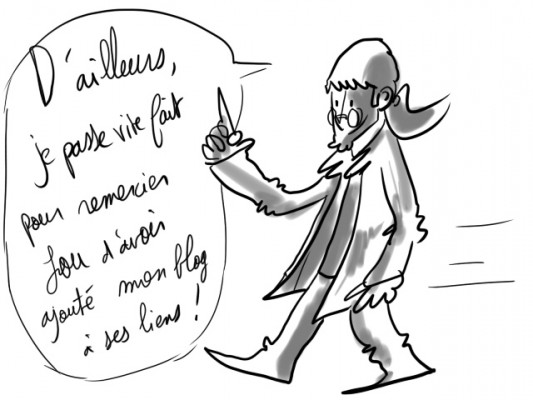 D'ailleurs,
je passe vite fait
pour remercier
Lou d'avoir
ajouté mon blog
à ses liens !